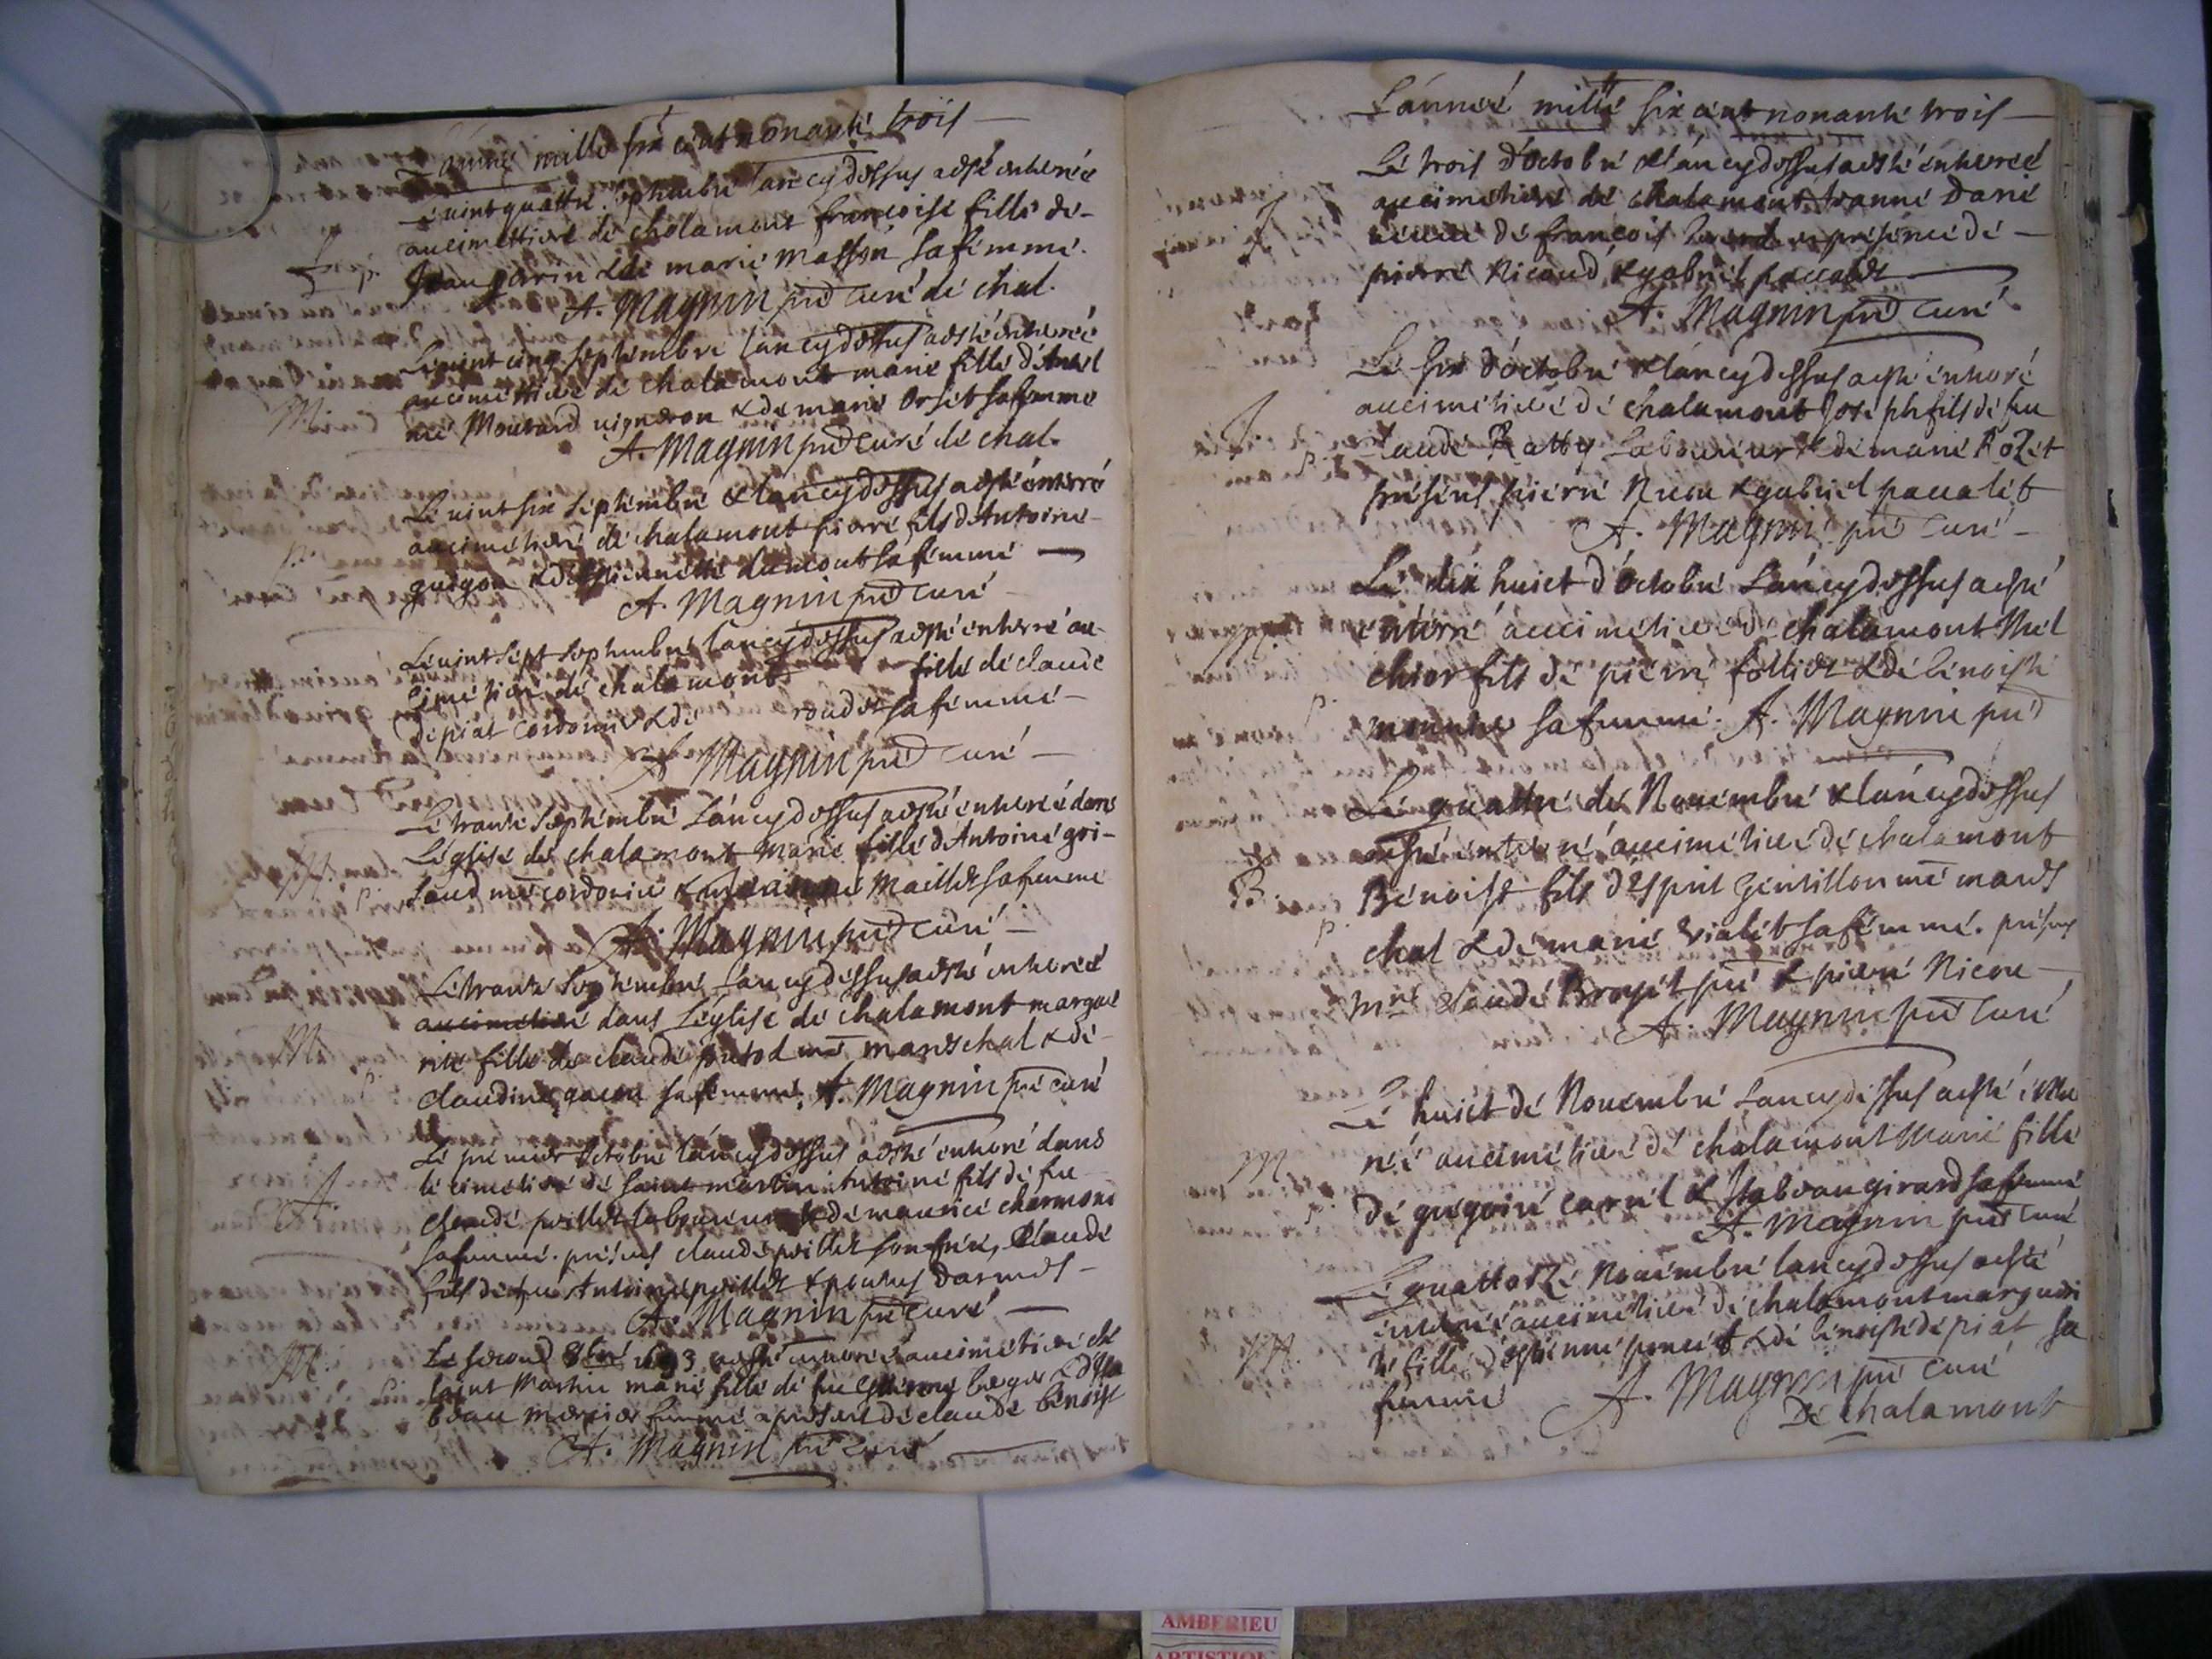 L'année mille six cent nonante trois
Le vint quattre septembre lancy dessus aesté enterrée
au cimettiere de chalamont francoise fille de
Jean garin & de marie masson sa femme.
A. Magnin prd curé de chal.
Le vint cinq septembre lancy dessus aesté enterrée
au cimettiere de chalamont marie fille d'Anthel
me Moutard vigneron & de marie Orset sa femme
A. Magnin prd curé de chal.
Le vint six septembre & lancy dessus aesté enterré
au cimetiere de chalamont pierre fils d'Antoine
guigon & d'estiennette dumont sa femme
A. Magnin prd curé
Le vint sept septembre lancy dessus aesté enterré au
cimetiere de chalamont fille de claude
depiat cordonier & de roudet sa femme
A. Magnin prd curé
Le trante septembre Lancy dessus aesté enterrée dans
L'eglise de chalamont marie fille d'Antoine gri-
saud me cordonier & Maillet sa femme
A. Magnin prd curé
Le trante septembre lancy dessus aesté enterrée
au cimetiere dans L'eglise de chalamont margue
rite fille de claude putod me mareschal & de
claudine gacon sa femme. A. Magnin prd curé
Le premier octobre lancy dessus aesté enterré dans
le cimetiere de saint martin Antoine fils de feu
claude peillet laboureur & de maurice charmoni
sa femme. présens claude peillet son frere, Claude
fils de feu Antoine peillet &
A. Magnin prd curé
Le second 8bre 1693 aesté enterrée au cimetiere de
saint Martin marie fille de feu estienne & d'Isa
beau mercier femme a present de claude benoist
A. Magnin prd curé
L'année mille six cent nonante trois
Le trois d'octobre & lancy dessus aesté enterrée
au cimetiere de chalamont Jeanne Darie
veuve de francois en présence de
pierre Nicoud & gabriel paccalet
A. Magnin prd curé
Le six d'octobre & lancy dessus aesté enterré
au cimetiere de chalamont Joseph fils de feu
claude Ratty Laboureur & de marie Rozet
présens pierre Nicou & gabriel pacalet
A. Magnin prd curé
Le dix huict d'octobre Lancy dessus aesté
enterré au cimetiere de chalamont Mel
chior fils de pierre folliet & de benoiste
monnier sa femme. A. Magnin prd
Le quattre de Novembre & lancy dessus
aesté enterré au cimetiere de chalamont
Benoist fils d'esprit Gentillon me mares
chal & de marie Vialet sa femme. présens
mre claude Broyet pre & pierre Nicou
A. Magnin prd curé
Le huict de Novembre Lancy dessus aesté enter
rée au cimetiere de chalamont Marie fille
de gregoire carrel & Isabeau girard sa femme
A. Magnin prd curé
Le quattorze Novembre lancy dessus aesté
enterrée au cimetiere de chalamont margueri
te fille d'estienne poncet & de benoiste depiat sa
femme A. Magnin prd curé
De chalamont
AMBERIEU